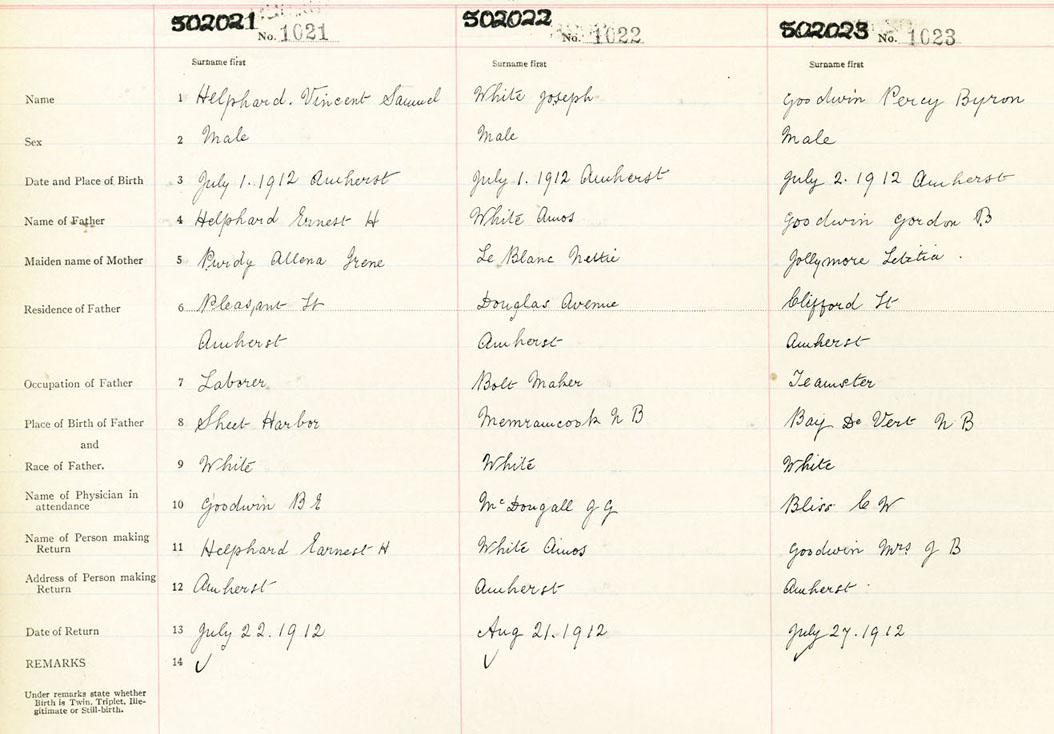 502021 502022 502023
No. 1021 No. 1022 No. 1023
Surname first Surname first Surname first
Name 1 Helphard. Vincent Samuel White Joseph Goodwin Percy Byron
Sex 2 Male Male Male
Date and Place of Birth 3 July 1. 1912 Amherst July 1. 1912 Amherst July 2. 1912 Amherst
Name of Father 4 Helphard Ernest H White Amos Goodwin Gordon B
Maiden name of Mother 5 Purdy Allena Irene Le Blanc Nettie Jollymore Letitia .
Residence of Father 6 Pleasant St Douglas Avenue Clifford St
Amherst Amherst Amherst
Occupation of Father 7 Laborer Bolt Maker Teamster
Place of Birth of Father 8 Sheet Harbor Memramcook N B Bay De Vert N B
and
Race of Father. 9 White White White
Name of Physician in
attendance 10 Goodwin B E McDougall J G Bliss C W
Name of Person making
Return 11 Helphard Earnest H White Amos Goodwin Mrs J B
Address of Person making
Return 12 Amherst Amherst Amherst
Date of Return 13 July 22. 1912 Aug 21. 1912 July 27. 1912
REMARKS 14 ✓ ✓ ✓
Under remarks state whether
Birth is Twin, Triplet, Ille-
gitimate or Still-birth.